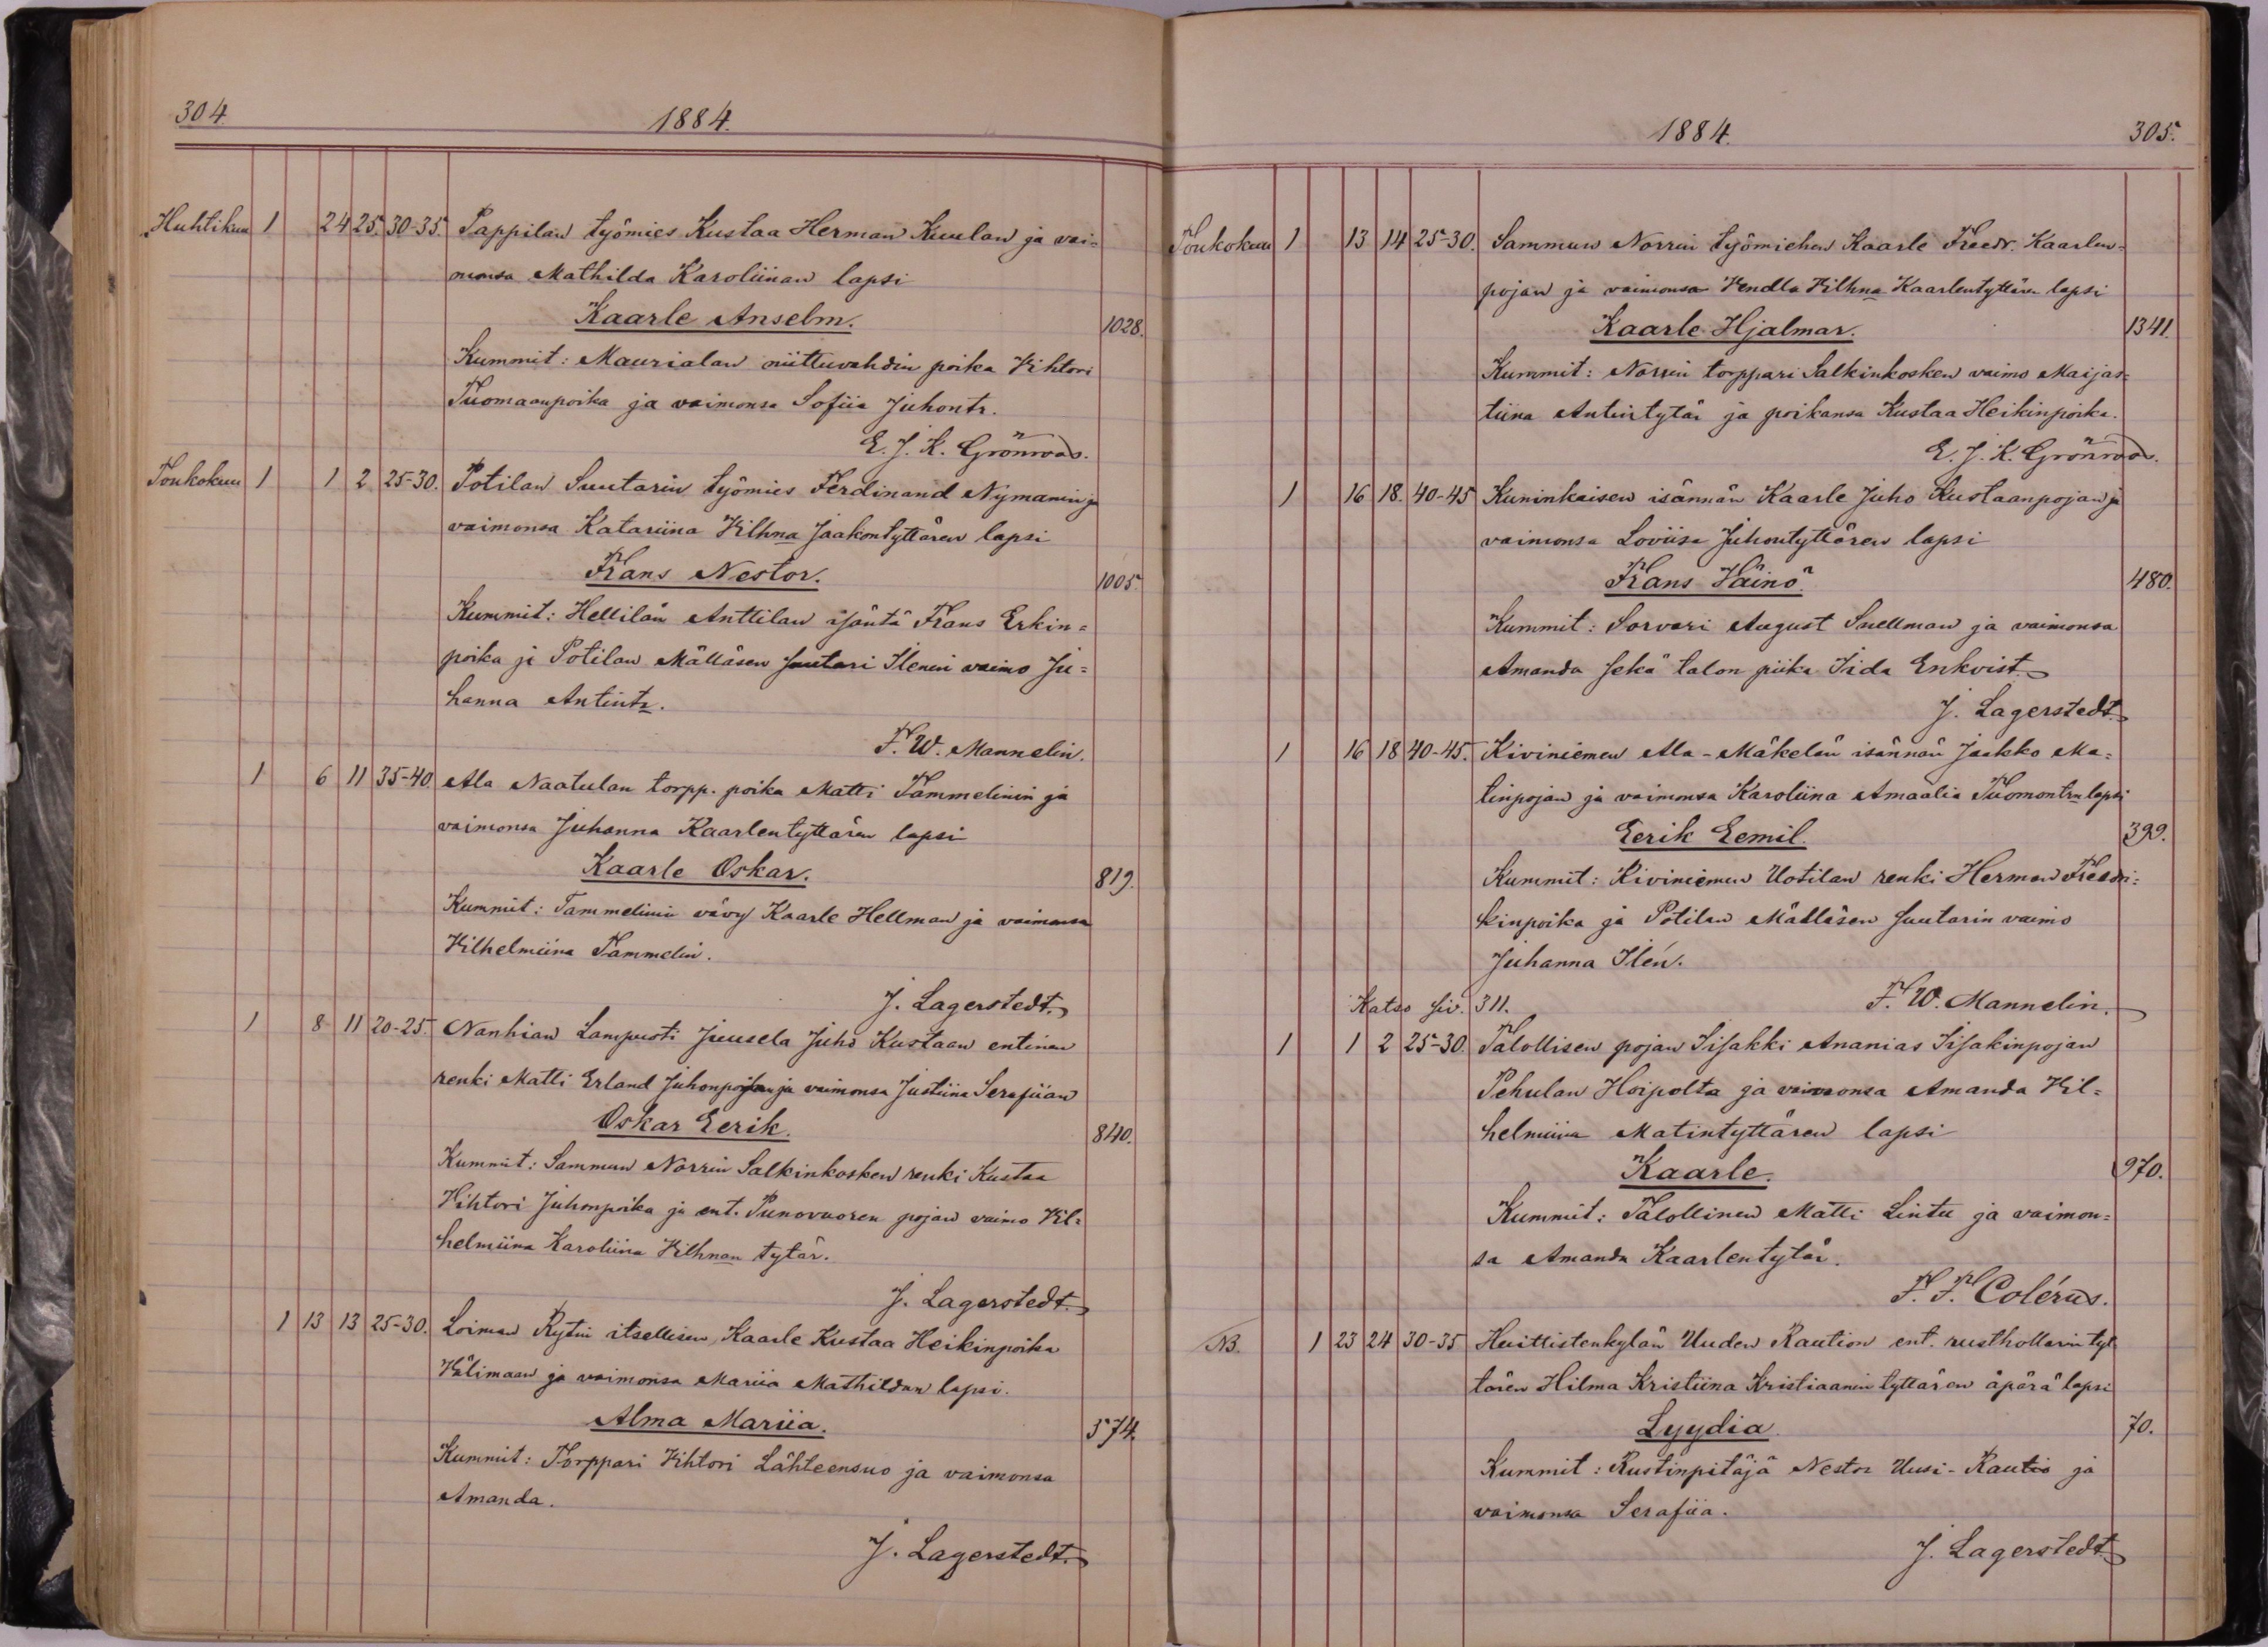 304.
1884.
Huhtikuu 1 24 25. 30-35. Pappilan työmies Kustaa Herman Kuulan ja vai=
monsa Mathilda Karoliinan lapsi
Kaarle Anselm. 1028.
Kummit: Maurialan niittuvahdin poika Vihtori
Tuomaanpoika ja vaimonsa Sofiia Juhontr.
E. J. K. Grönroos.
Toukokuu 1 1 2 25-30. Potilan Suutarin työmies Ferdinand Nymanin ja
vaimonsa Katariina Vilhna Jaakontyttären lapsi
Frans Nestor. 1005.
Kummit: Hellilän Anttilan isäntä Frans Erkin=
poika ja Potilan Mälläsen suutari Ilenin vaimo Ju=
hanna Antintr.
F. W. Mannelin.
1 6 11 35-40. Ala Naatulan torpp. poika Matti Tammelinin ja
vaimonsa Juhanna Kaarlentyttären lapsi
Kaarle Oskar. 819.
Kummit: Tammelinin vävy Kaarle Hellman ja vaimonsa
Vilhelmiina Tammelin.
J. Lagerstedt.
1 8 11 20-25. Nanhian Lampusti Juusela Juho Kustaan entinen
renki Matti Erland Juhonpojan ja vaimonsa Justiina Serafiian
Oskar Eerik. 840.
Kummit: Sammun Norrin Salkinkosken renki Kustaa
Vihtori Juhonpoika ja ent. Punovuoren pojan vaimo Vil=
helmiina Karoliina Vilhnan tytär.
J. Lagerstedt.
1 13 13 25-30. Loiman Rytin itsellisen Kaarle Kustaa Heikinpoika
Välimaan ja vaimonsa Mariia Mathildan lapsi.
Alma Mariia. 574.
Kummit: Torppari Vihtori Lähteensuo ja vaimonsa
Amanda.
J. Lagerstedt.
1884.
305.
Toukokuu 1 13 14 25-30. Sammun Norrin työmiehen Kaarle Freedr. Kaarlen=
pojan ja vaimonsa Vendla Vilhna Kaarlentyttären lapsi
Kaarle Hjalmar. 1341.
Kummit: Norrin torppari Salkinkosken vaimo Maijas=
tiina Antintytär ja poikansa Kustaa Heikinpoika.
E. J. K. Grönroos.
1 16 18. 40-45 Kuninkaisen isännän Kaarle Juho Kustaanpojan ja
vaimonsa Loviisa Juhontyttären lapsi
Frans Väinö. 480.
Kummit: Sorvari August Snellman ja vaimonsa
Amanda sekä talon piika Iida Enkvist.
J. Lagerstedt.
1 16 18 40-45. Kiviniemen Ala-Mäkelän isännän Jaakko Ma=
tinpojan ja vaimonsa Karoliina Amaalia Tuomontrn lapsi
Eerik Eemil. 399.
Kummit: Kiviniemen Uotilan renki Herman Freedri=
kinpoika ja Potilan Mälläsen suutarin vaimo
Juhanna Ilén.
Katso siv. 311. F. W. Mannelin.
1 1 2 25-30. Talollisen pojan Iisakki Ananias Iisakinpojan
Pehulan Hoipolta ja vaimonsa Amanda Vil=
helmiina Matintyttären lapsi
Kaarle. 970.
Kummit: Talollinen Matti Lintu ja vaimon=
sa Amanda Kaarlentytär.
F. F. Colérus.
NB. 1 23 24 30-35 Huittistenkylän Uuden Raution ent. rusthollarin tyt=
tären Hilma Kristiina Kristiaanin tyttären äpärä lapsi
Lyydia. 70.
Kummit: Rustinpitäjä Nestor Uusi-Rautio ja
vaimonsa Serafiia.
J. Lagerstedt.